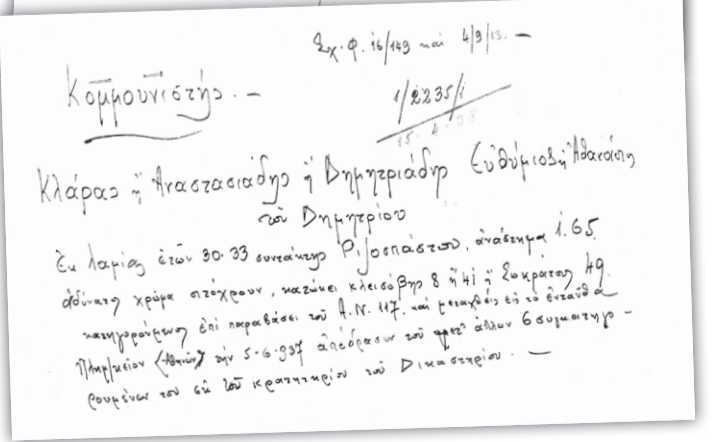 Σχ. Φ. 16/149 καὶ 4/9/13. —
Κομμουνιστής. —
1/2235/1
15-4-38
Κλάρας ἢ Αναστασιάδης ἢ Δημητριάδης Εὐθύμιος ἢ Ἀθανάσης
τοῦ Δημητρίου
Ἐκ Λαμίας ἐτῶν 30-33 συντάκτης Ριζοσπάστου, ἀνάστημα 1.65.
ἀδύνατος χρῶμα σιτόχρουν, κατώκει Κλεισόβης 8 ἢ 41 ἢ Σωκράτους 49.
κατηγορούμενος ἐπὶ παραβάσει τοῦ Α.Ν. 117. καὶ μεταχθεὶς εἰς τὸ ἐνταῦθα
Πλημ/κεῖον (Ἀθηνῶν) τὴν 5-6-937 ἀπέδρασεν τοῦ μετ' ἄλλων 6 συγκατηγο-
ρουμένων του ἐκ τοῦ κρατητηρίου τοῦ Δικαστηρίου. —